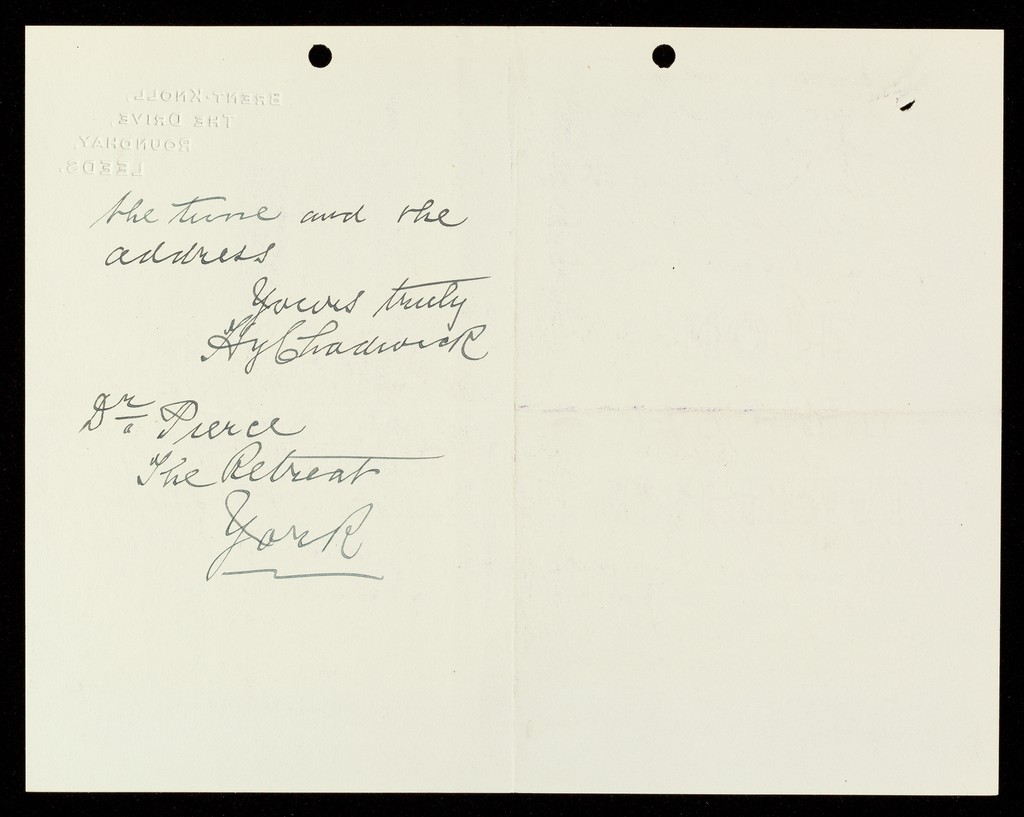 BRENT-KNOLL,
THE DRIVE,
ROUNDHAY,
LEEDS.
the time and the
address
Yours truly
Hy Chadwick
Dr. Pierce
The Retreat
York